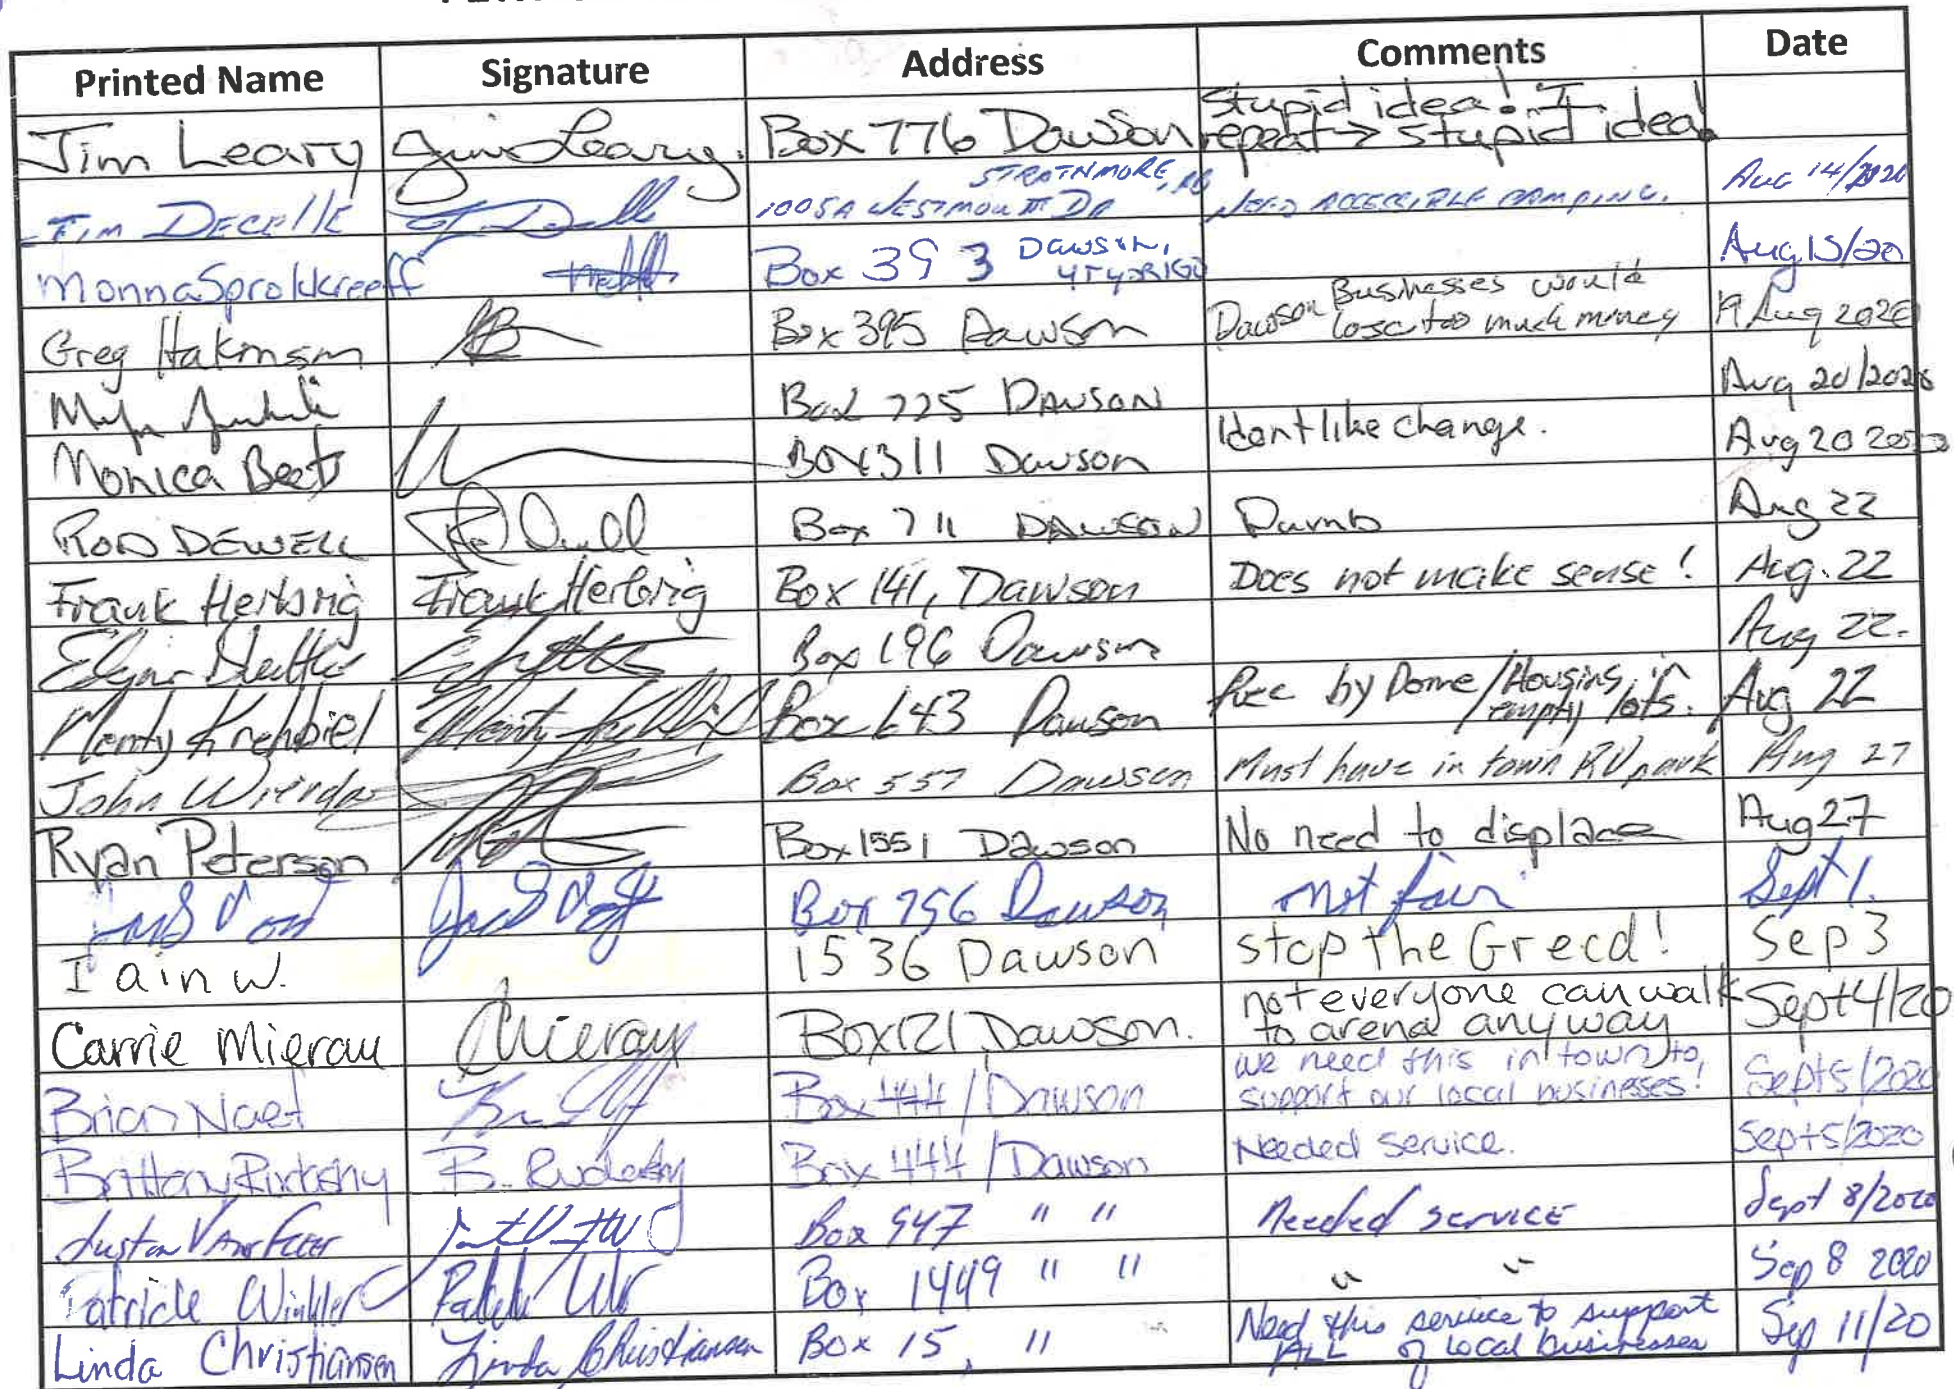 Printed Name Signature Address Comments Date
Jim Leary Jim Leary. Box 776 Dawson Stupid idea! I repeat → stupid idea!
Tim Decelle 1005A Westmount Dr Strathmore, AB Need accessible camping. Aug 14/2020
Monna Sprokkreeff Box 393 Dawson, YT Y0B1G0 Aug 15/20
Greg Hakonson Box 395 Dawson Dawson Businesses would lose too much money 19 Aug 2020
Box 725 Dawson Aug 20/2020
Monica Beets Box 311 Dawson I dont like change. Aug 20 2020
Rod Dewell Box 711 Dawson Dumb Aug 22
Frank Herbrig Frank Herbrig Box 141, Dawson Does not make sense! Aug. 22
Box 196 Dawson Aug 22.
Monty Krehbiel Box 643 Dawson Rec by Dome/Housing in empty lots. Aug 22
John Wierda Box 557 Dawson Must have in town RV park Aug 27
Ryan Peterson Box 1551 Dawson No need to displace Aug 27
Box 756 Dawson not fair Sept 1.
Iain W. 1536 Dawson stop the Greed! Sep 3
Carrie Mierau CMierau Box 121 Dawson. not everyone can walk to arena anyway Sept 4/20
Brian Naef Box 444/Dawson we need this in town to support our local businesses! Sept 5/2020
Brittany Rudosky B. Rudosky Box 444/Dawson Needed service. Sept 5/2020
Box 947 " " Needed service Sept 8/2020
Patrick Winkler Box 1449 " " " " Sep 8 2020
Linda Christiansen Linda Christiansen Box 15, " Need this service to support ALL of local businesses Sep 11/20